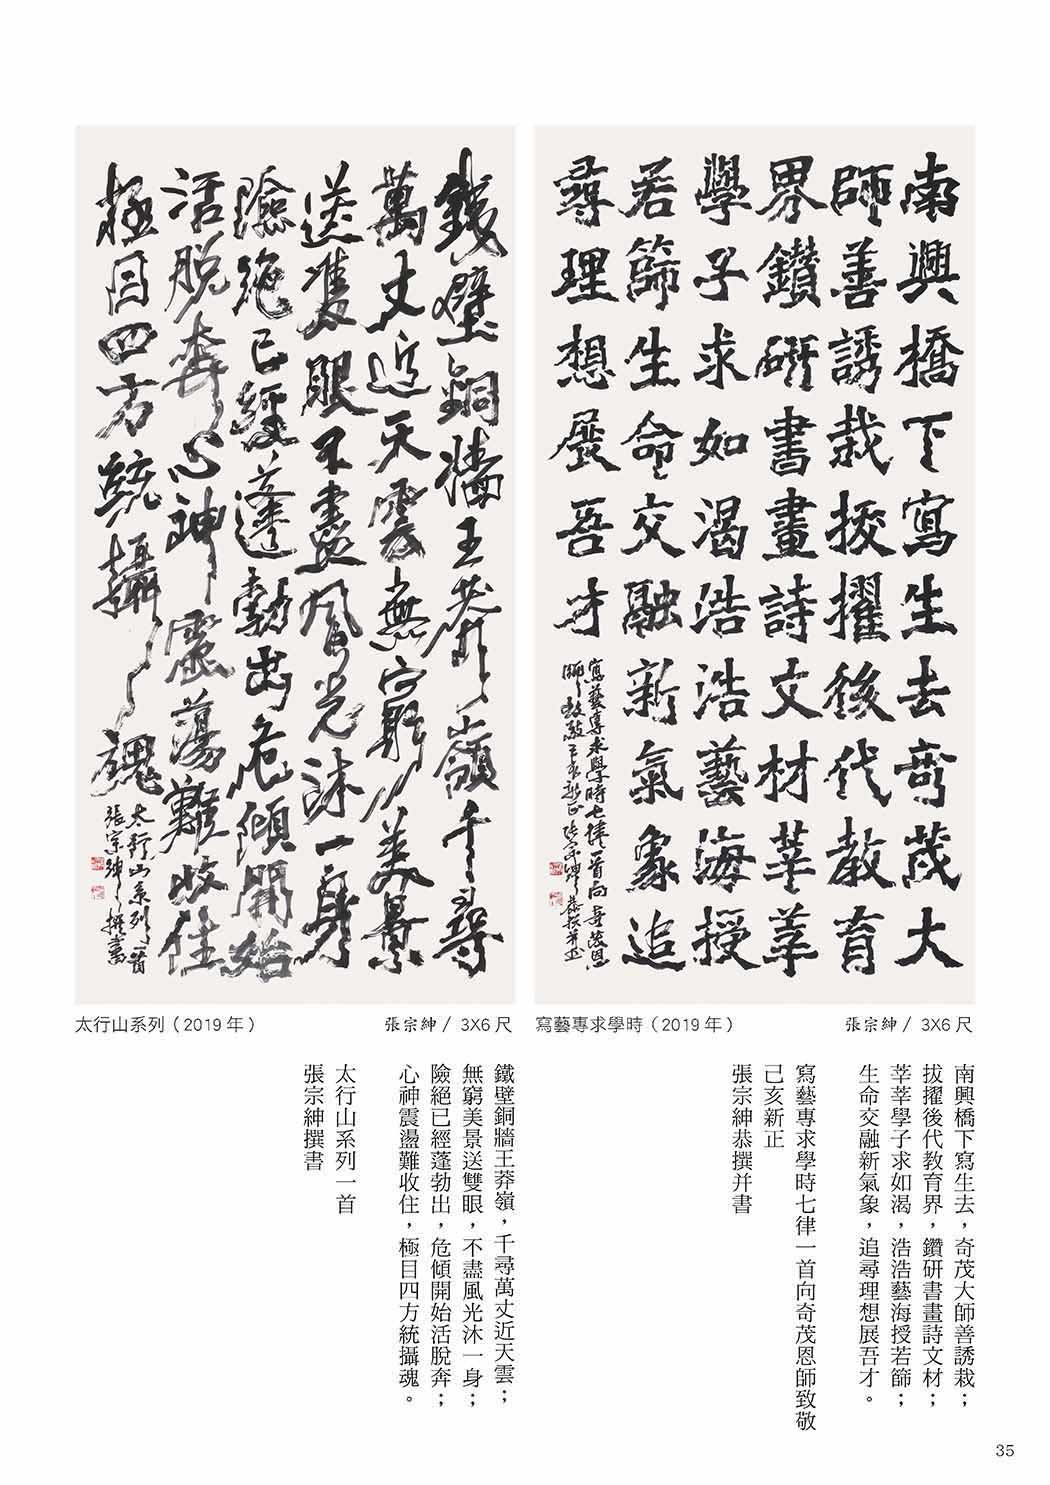 南興橋下寫生去奇茂大
師善誘栽拔擢後代教育
界鑽研書畫詩文材莘莘
學子求如渴浩浩藝海授
若篩生命交融新氣象追
尋理想展吾才
寫藝專求學時七律一首向奇茂恩
師致敬己亥新正張宗紳恭撰并書
鐵壁銅牆王莽嶺千尋
萬丈近天雲無窮美景
送雙眼不盡風光沐一身
險絕已經蓬勃出危傾開始
活脫奔心神震蕩難收住
極目四方統攝魂
太行山系列一首
張宗紳撰書
寫藝專求學時(2019年) 張宗紳/ 3X6尺
太行山系列(2019年) 張宗紳/ 3X6尺
南興橋下寫生去，奇茂大師善誘栽；
拔擢後代教育界，鑽研書畫詩文材；
莘莘學子求如渴，浩浩藝海授若篩；
生命交融新氣象，追尋理想展吾才。
寫藝專求學時七律一首向奇茂恩師致敬
己亥新正
張宗紳恭撰并書
鐵壁銅牆王莽嶺，千尋萬丈近天雲；
無窮美景送雙眼，不盡風光沐一身；
險絕已經蓬勃出，危傾開始活脫奔；
心神震盪難收住，極目四方統攝魂。
太行山系列一首
張宗紳撰書
35